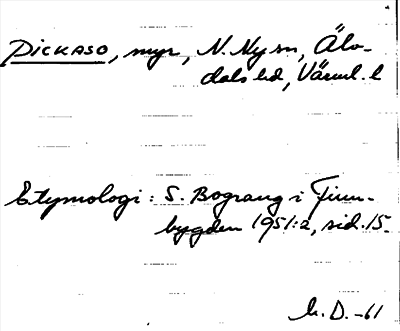 PICKASO, myr, N. Ny sn, Älv-
dals hd, Värml. l
Etymologi: S. Bograng i Finn-
bygden 1951:2, sid. 15.
h. D. -61